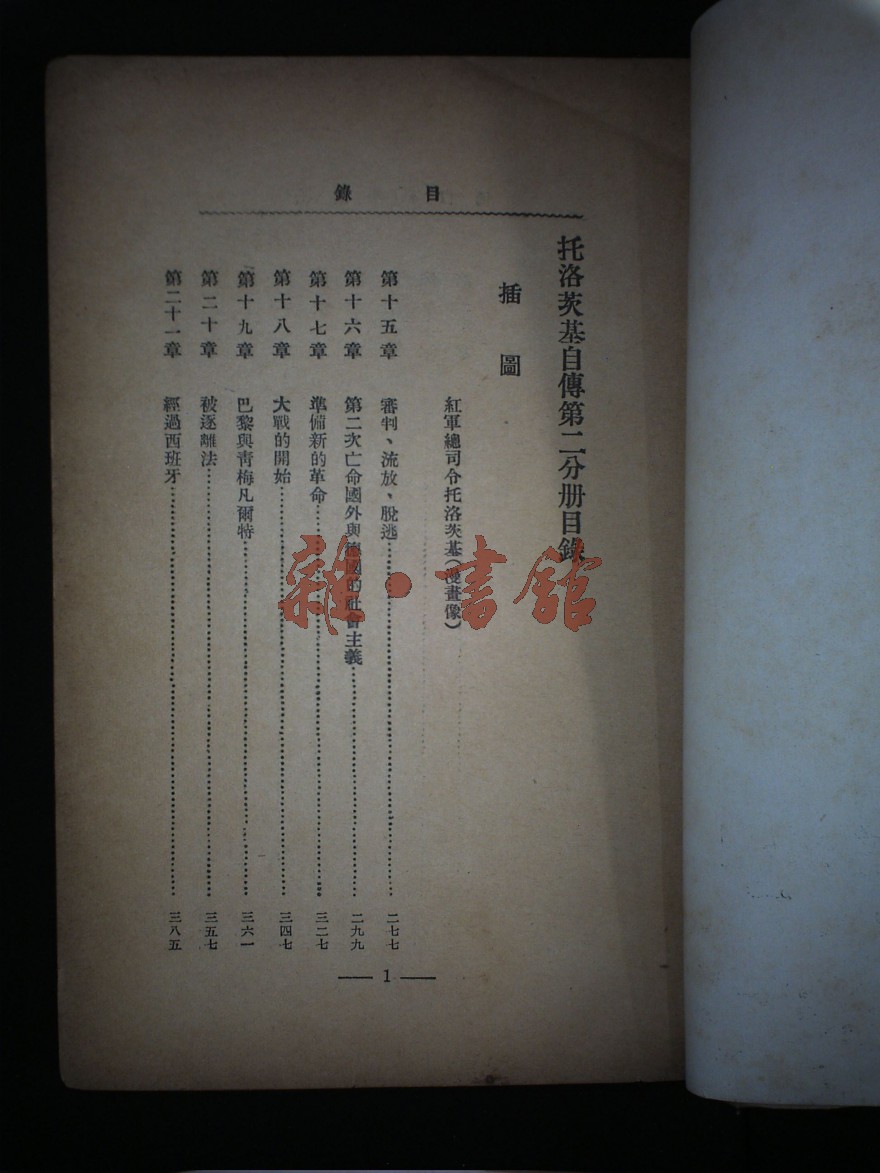 目錄
托洛茨基自傳第二分册目錄
插圖
紅軍總司令托洛茨基(漫畫像)
第十五章 審判、流放、脫逃 二七七
第十六章 第二次亡命國外與德國的社會主義 二九九
第十七章 準備新的革命 三二七
第十八章 大戰的開始 三四七
第十九章 巴黎與靑梅凡爾特 三六一
第二十章 被逐離法 三五七
第二十一章 經過西班牙 三八五
— 1 —
雜·書館